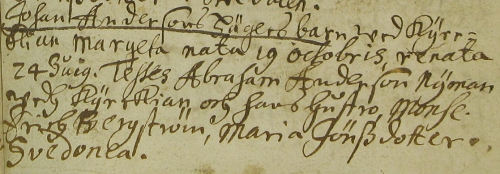 Johan Andersons Hügers barn wed Kyrc=
Kian Margeta nata 19 Octobris, renata
24 Testes Abraham Anderson Nyman
wedh KyrcKian och hans hustro, Monse.
Erich Bergström, Maria Jönßdotter
Svedonia.